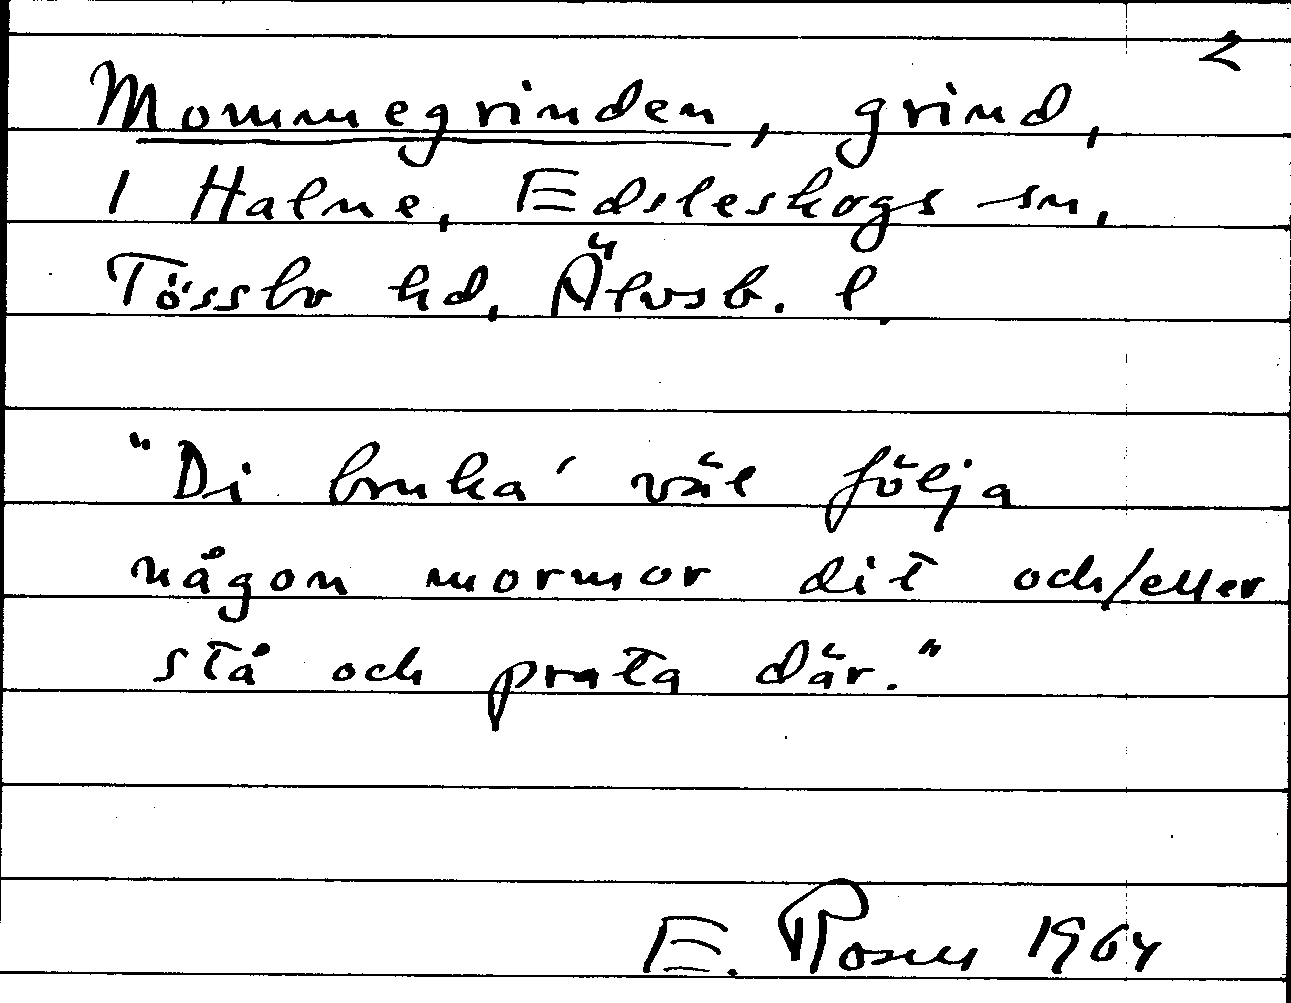 2
Mommegrinden, grind,
1 Halne, Edsleskogs sn,
Tössbo hd, Älvsb. l.
"Di bruka' väl följa
någon mormor dit och/eller
stå och prata där."
E. Rosus 1964